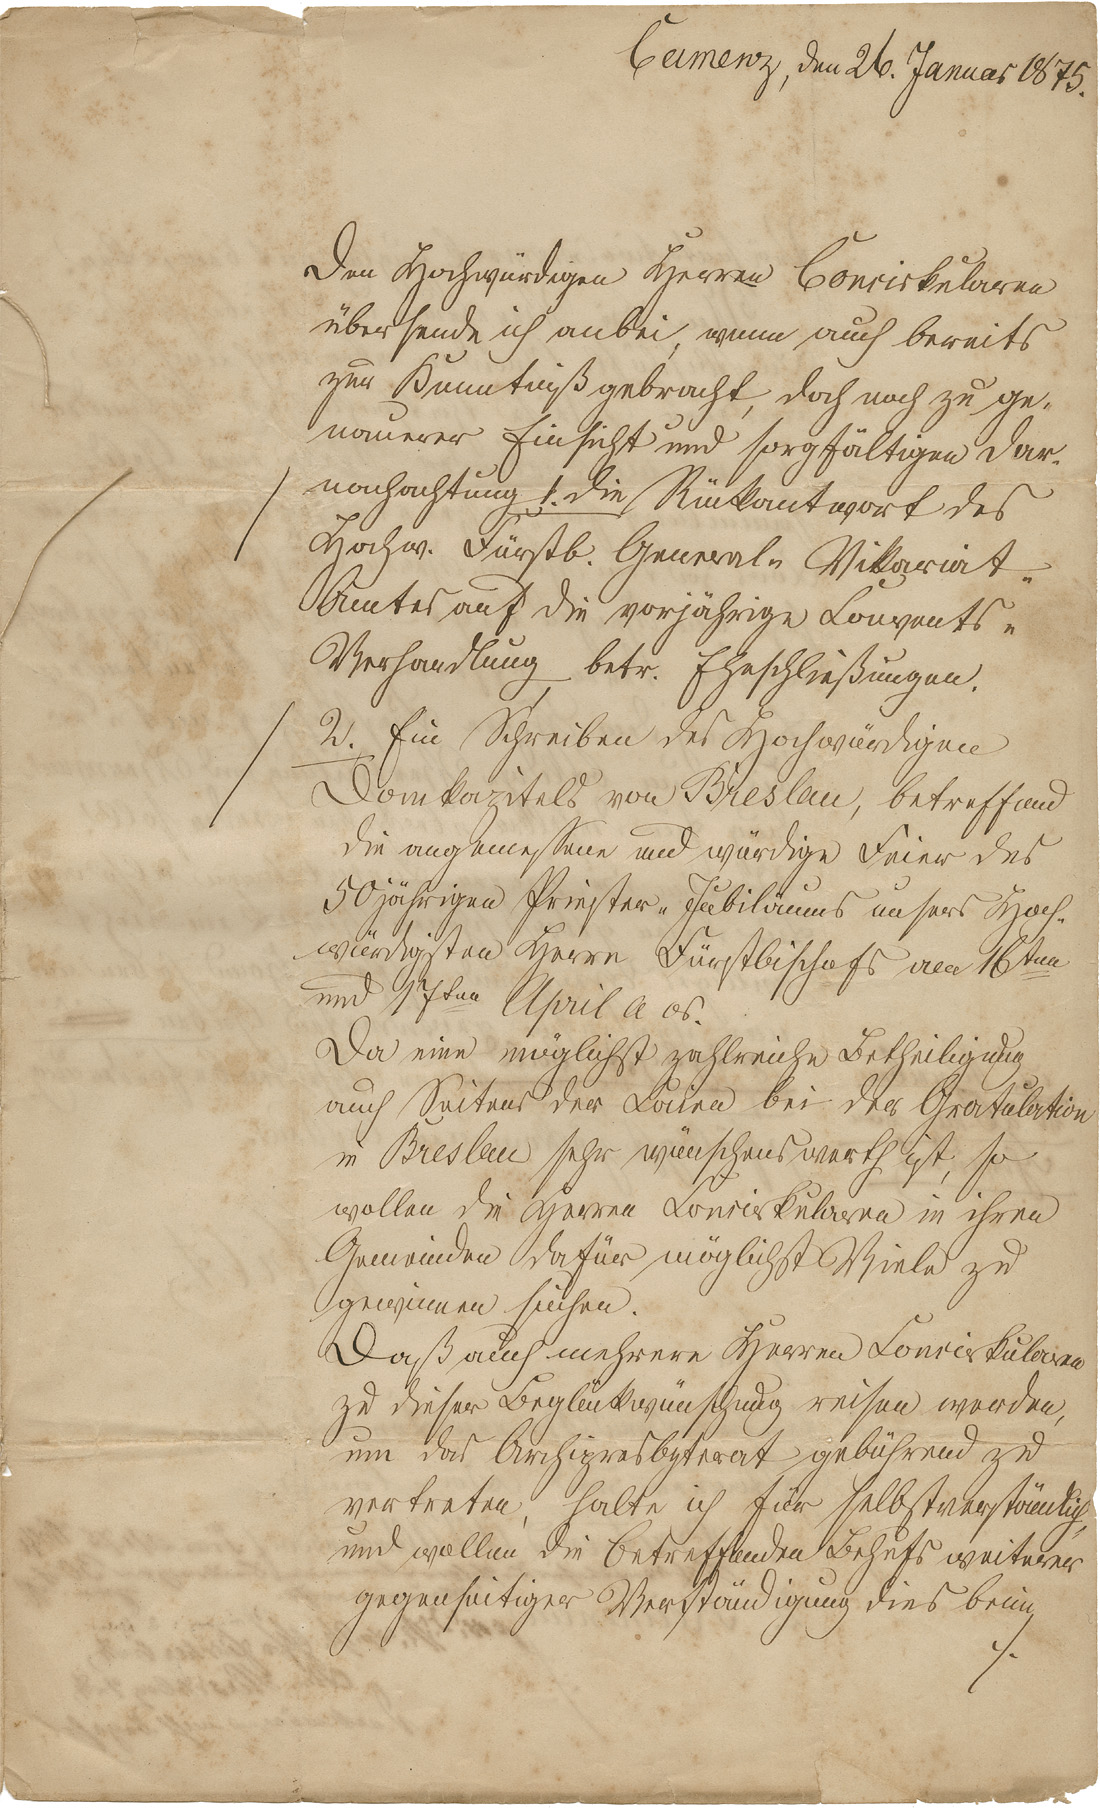 Camenz, den 26. Januar 1875.
Den Hochwürdigen Herren Concirkularen
übersende ich anbei, wenn auch bereits
zur Kenntniß gebracht, doch noch zu ge-
nauerer Einsicht und sorgfältigen Dar-
nachachtung 1. die Rückantwort des
Hochw. Fürstb. General- Vikariat-
Amtes auf die vorjährige Convents-
Verhandlung betr. Eheschließungen.
2. Ein Schreiben des Hochwürdigen
Domkapitels von Breslau, betreffend
die angemessene und würdige Feier des
50jährigen Priester- Jubiläums unsers Hoch-
würdigsten Herrn Fürstbischofs am 16ten
und 17ten April a
Da eine möglichst zahlreiche Betheiligung
auch Seitens der Laien bei der Gratulation
in Breslau sehr wünschenswerth ist, so
wollen die Herren Concirkularen in ihren
Gemeinden dafür möglichst Viele zu
gewinnen suchen.
Daß auch mehrere Herren Concirkularen
zu dieser Beglückwünschung reisen werden,
um das Archipresbyterat gebührend zu
vertreten, halte ich für selbstverständlich,
und wollen die betreffenden Behufs weiterer
gegenseitiger Verständigung dies beim
./.